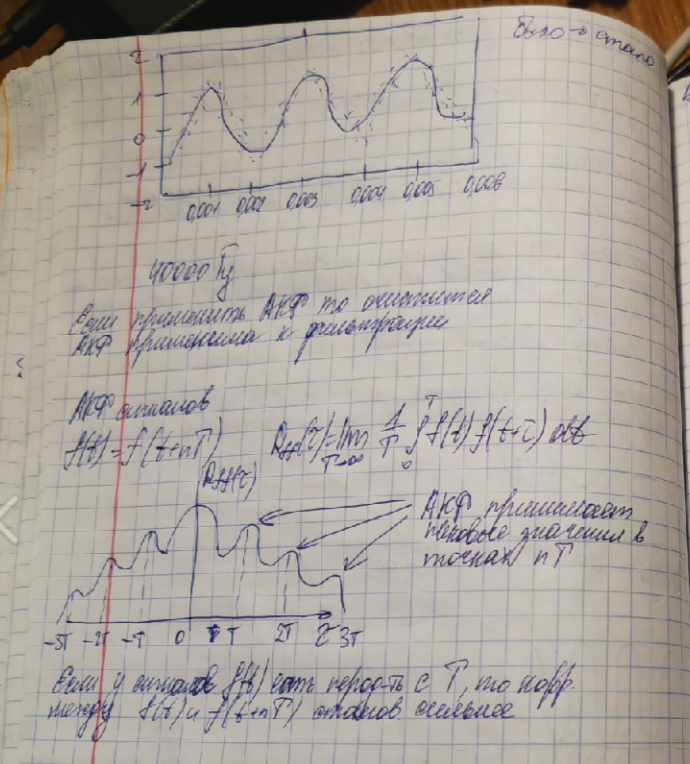 Было → стало
2
1
0
-1
-2
0,001 0,002 0,003 0,004 0,005 0,006
40000 Гц
Если применить АКФ то очистится
АКФ применима к фильтрации
АКФ сигналов
f(t) = f(t+nT) Rff(τ) = lim T→∞ 1/T ∫₀ᵀ f(t) f(t+τ) dt
Rff(τ)
АКФ принимает
пиковые значения в
точках nT
-3T -2T -T 0 T 2T τ 3T
Если у сигналов f(t) есть период-ть с T, то корр.
между f(t) и f(t+nT) сильнее